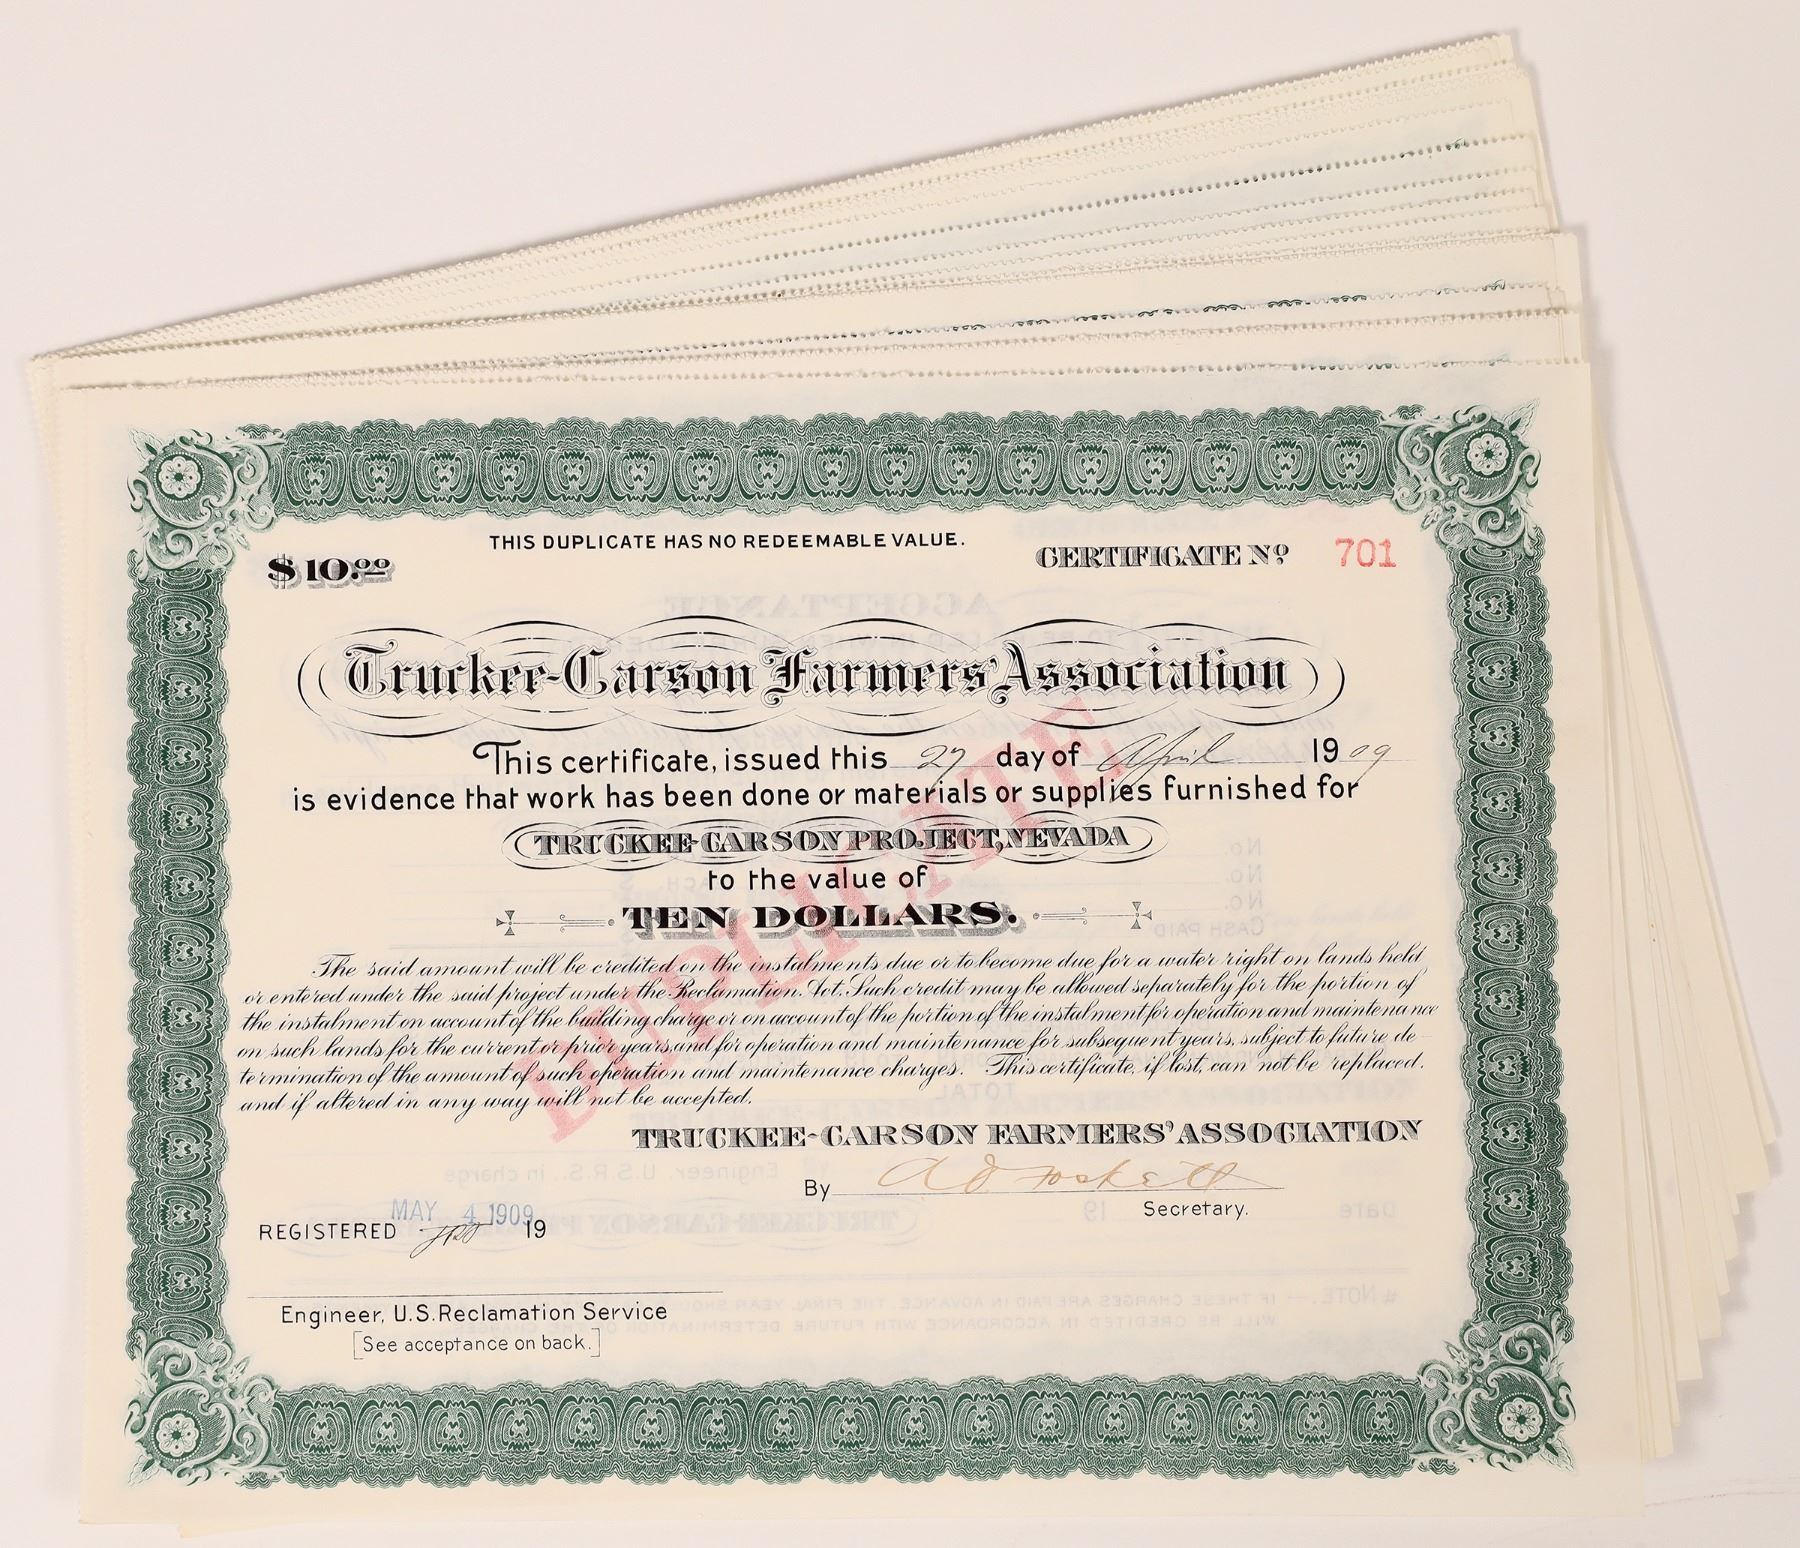 THIS DUPLICATE HAS NO REDEEMABLE VALUE.
$10.00
CERTIFICATE No. 701
Truckee-Carson Farmers' Association
This certificate, issued this 27 day of April 1909
is evidence that work has been done or materials or supplies furnished for
TRUCKEE-CARSON PROJECT, NEVADA
to the value of
TEN DOLLARS.
DUPLICATE
The said amount will be credited on the instalments due or to become due for a water right on lands held
or entered under the said project under the Reclamation Act. Such credit may be allowed separately for the portion of
the instalment on account of the building charge or on account of the portion of the instalment for operation and maintenance
on such lands for the current or prior years and for operation and maintenance for subsequent years, subject to future de-
termination of the amount of such operation and maintenance charges. This certificate, if lost, can not be replaced,
and if altered in any way will not be accepted.
TRUCKEE-CARSON FARMERS' ASSOCIATION
By
Secretary.
REGISTERED MAY 4 1909 19
Engineer, U.S. Reclamation Service
[See acceptance on back.]